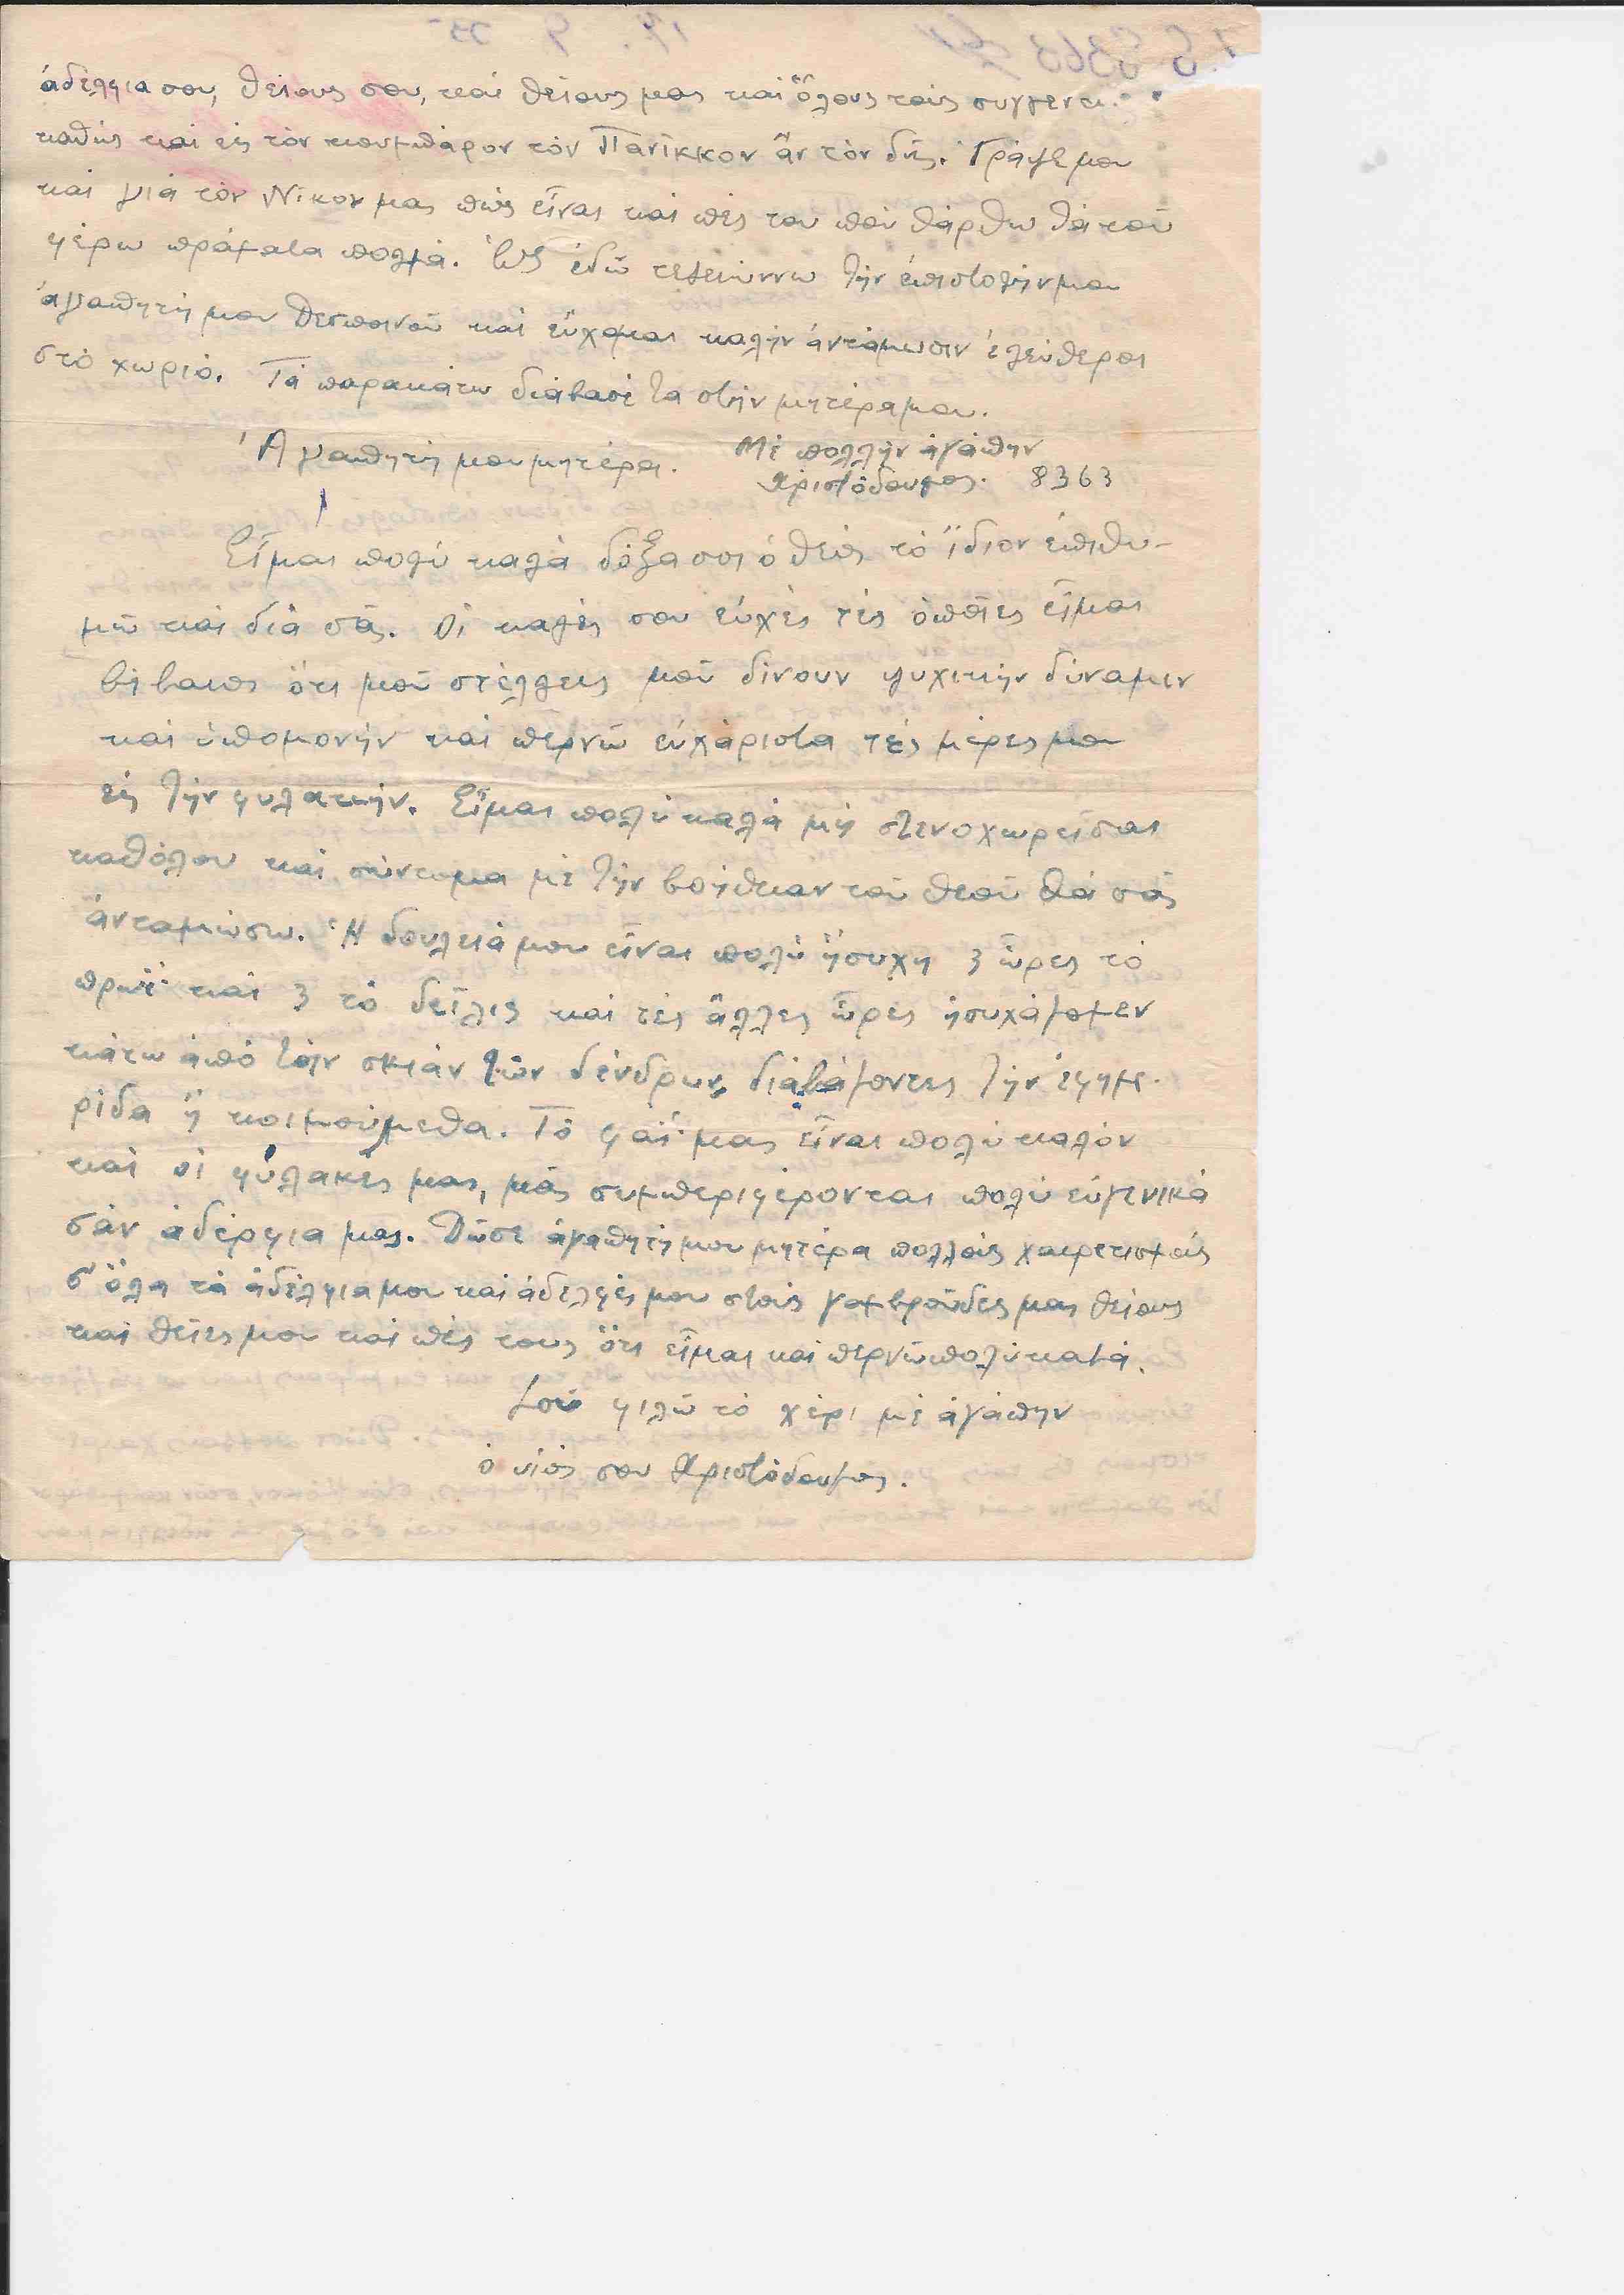 ἀδέλφια σου, θείους σου, καί θείους μας καί ὅλους τούς συγγενεῖ
καθώς καί εἰς τόν κουμπάρον τόν Πανίκκον ἄν τόν δῆς. Γράψε μου
καί γιά τόν Νίκον μας πῶς εἶναι καί πές του πού θάρθω θά τοῦ
φέρω πράματα πολλά. Ἕως ἐδῶ τελειώννω τήν ἐπιστολήν μου
ἀγαπητή μου Δεσποινοῦ καί εὔχομαι καλήν ἀντάμωσιν ἐλεύθεροι
στό χωριό. Τά παρακάτω διάβασέ τα στήν μητέρα μου.
Μέ πολλήν ἀγάπην
Χριστόδουλος. 8363
Ἀγαπητή μου μητέρα.
Εἶμαι πολύ καλά δόξα σοι ὁ θεός τό ἴδιον ἐπιθυ-
μῶ καί διά σᾶς. Οἱ καλές σου εὐχές τές ὁποῖες εἶμαι
βέβαιος ὅτι μοῦ στέλλεις μοῦ δίνουν ψυχικήν δύναμιν
καί ὑπομονήν καί περνῶ εὐχάριστα τές μέρες μου
εἰς τήν φυλακήν. Εἶμαι πολύ καλά μή στενοχωρεῖσαι
καθόλου καί σύντομα μέ τήν βοήθειαν τοῦ θεοῦ θά σᾶς
ἀνταμώσω. Ἡ δουλειά μου εἶναι πολύ ἥσυχη 3 ὧρες τό
πρωΐ καί 3 τό δεῖλις καί τές ἄλλες ὧρες ἡσυχάζομεν
κάτω ἀπό τήν σκιάν τῶν δένδρων διαβάζοντες τήν ἐφημε-
ρίδα ἤ κοιμούμεθα. Τό φαΐ μας εἶναι πολύ καλόν
καί οἱ φύλακες μας, μᾶς συμπεριφέρονται πολύ εὐγενικά
σάν ἀδέρφια μας. Δῶσε ἀγαπητή μου μητέρα πολλούς χαιρετισμούς
σ' ὅλα τά ἀδέλφια μου καί ἀδελφές μου στούς γαμβρούδες μας θείους
καί θεῖες μου καί πές τους ὅτι εἶμαι καί περνῶ πολύ καλά.
Σοῦ φιλῶ τό χέρι μέ ἀγάπην
ὁ υἱός σου Χριστόδουλος.